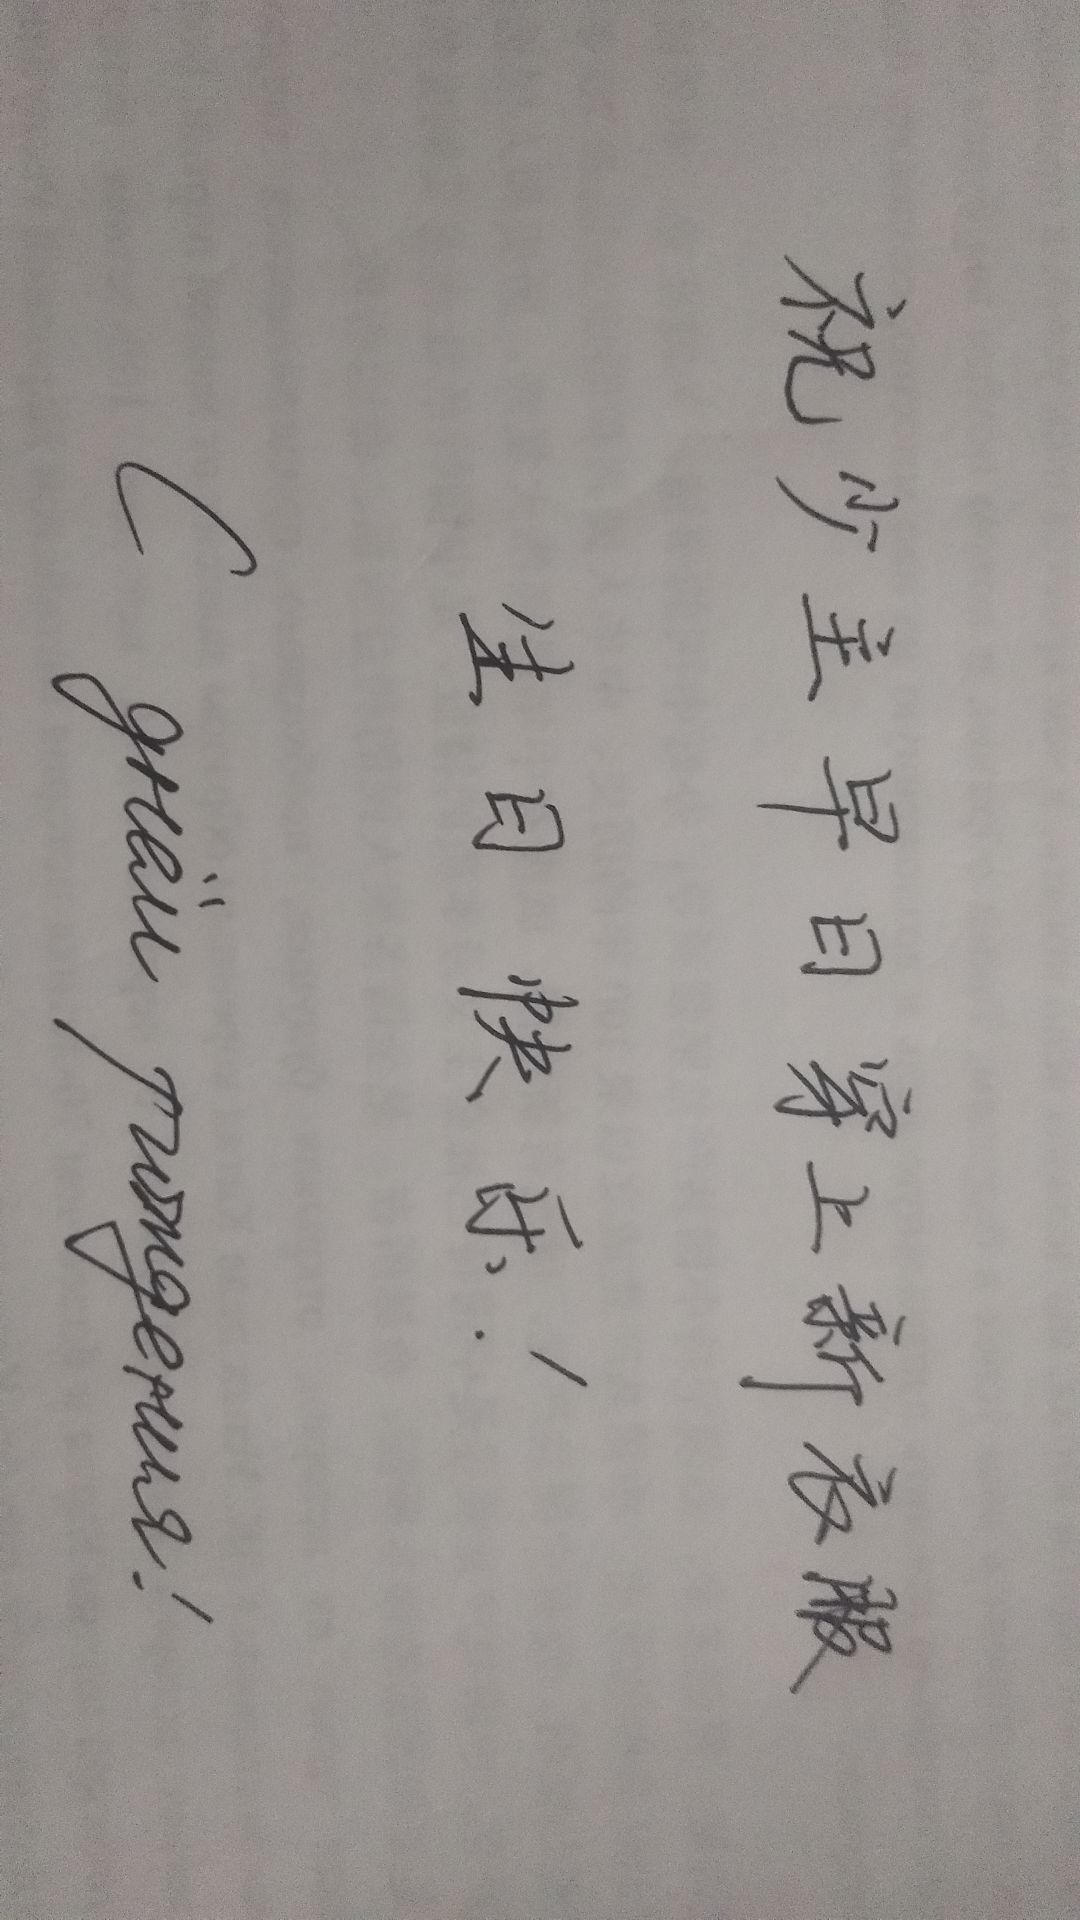 祝少主早日穿上新衣服
生日快乐!
С днём рождения!